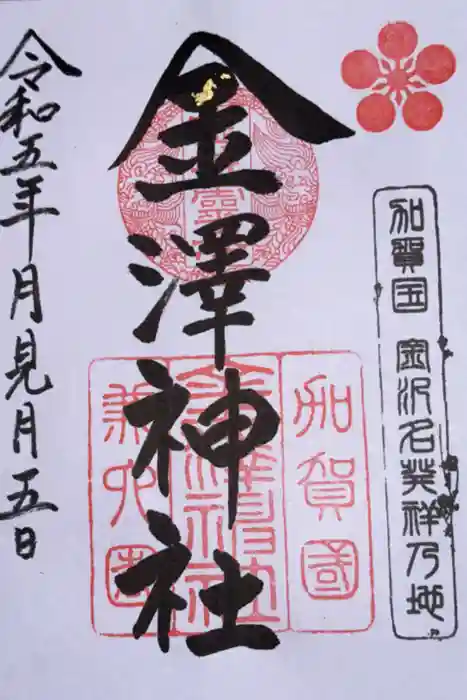 加賀国 金沢名発祥乃地
金澤神社
加賀國
金澤神社
兼六園
令和五年月見月五日